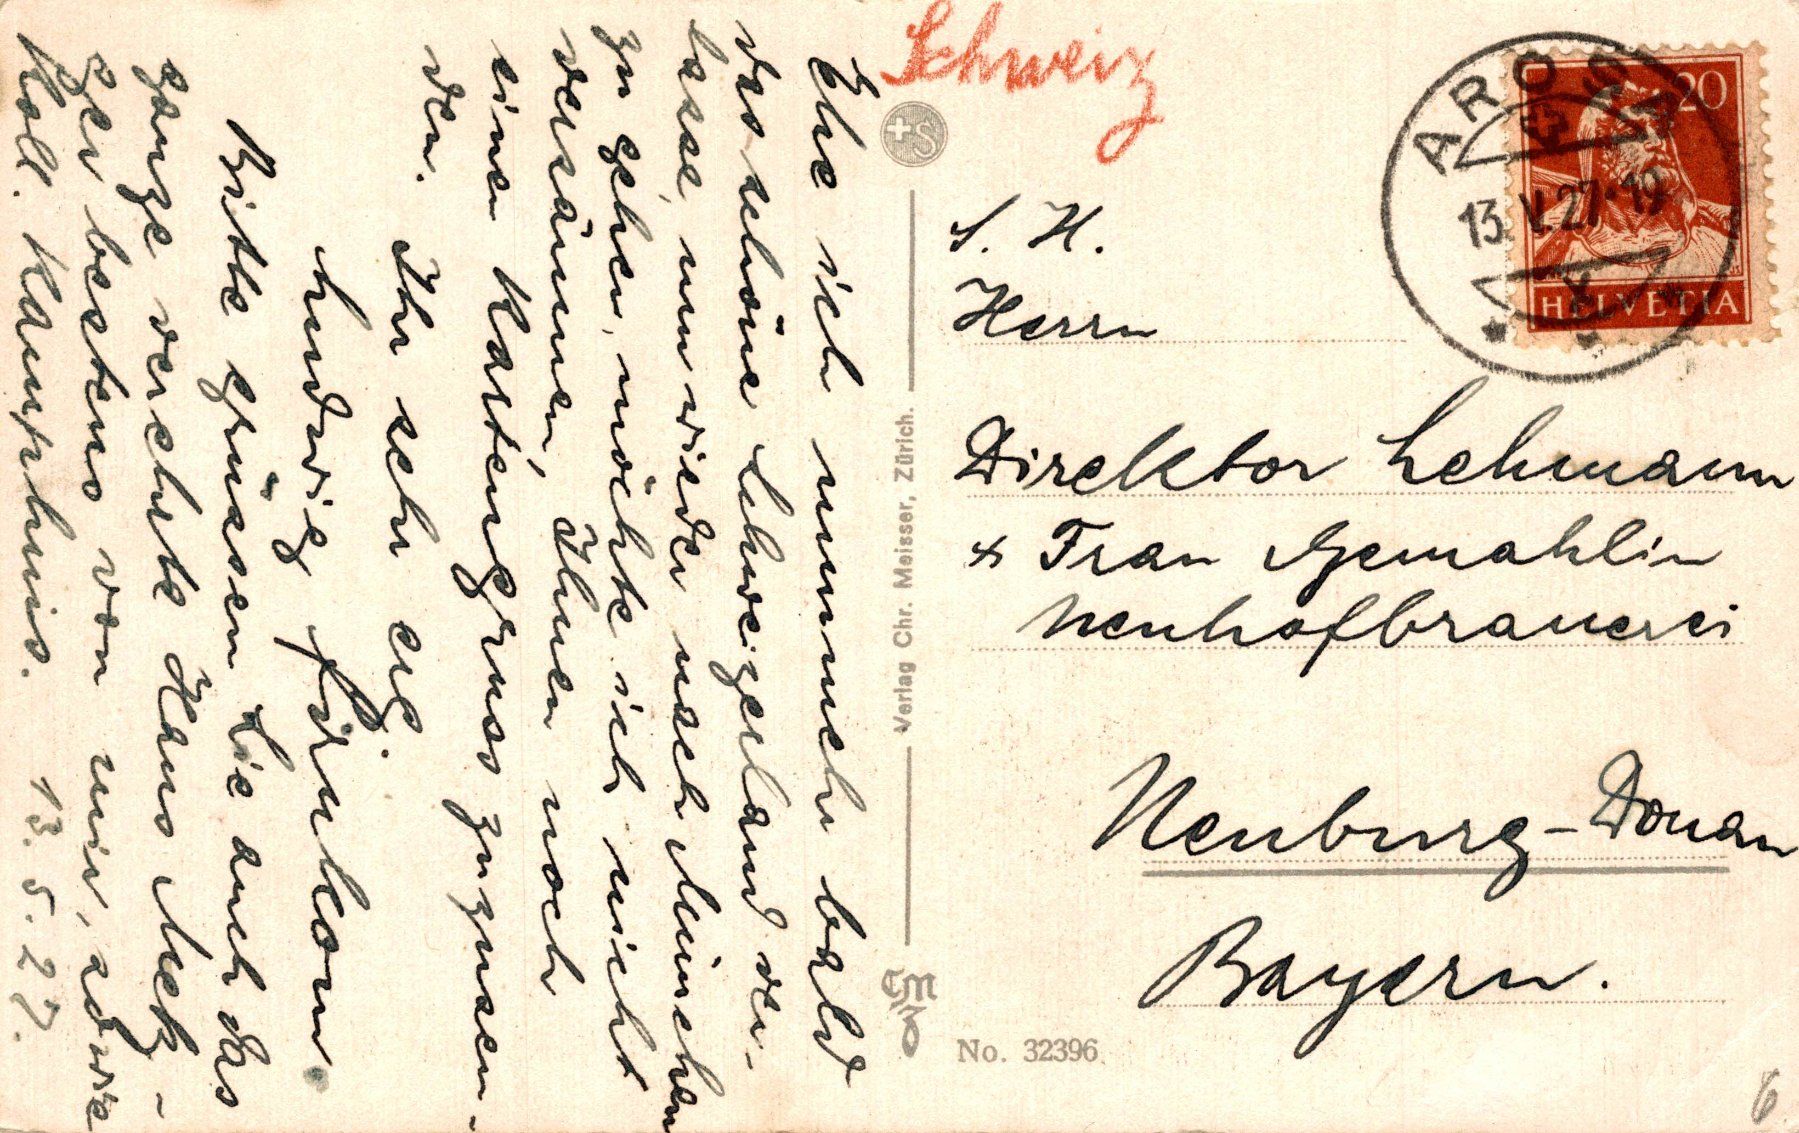 Schweiz
AROSA
13.V.27-19
20
HELVETIA
S. H.
Herrn
Direktor Lehmann
& Frau Gemahlin
Neuhofbrauerei
Neuburg-Donau
Bayern.
Verlag Chr. Meisser, Zürich.
No. 32396
6
Ehe ich nunmehr bald
das schöne Schweizerland ver-
lasse, um wieder nach München
zu gehen, möchte ich nicht
versäumen, Ihnen noch
einen Kartengruss zuzusen-
den.
Ihr sehr erg
Ludwig
Bitte grüssen Sie auch das
ganze verehrte Haus
bestens von mir,
Koll. 13.5.27.